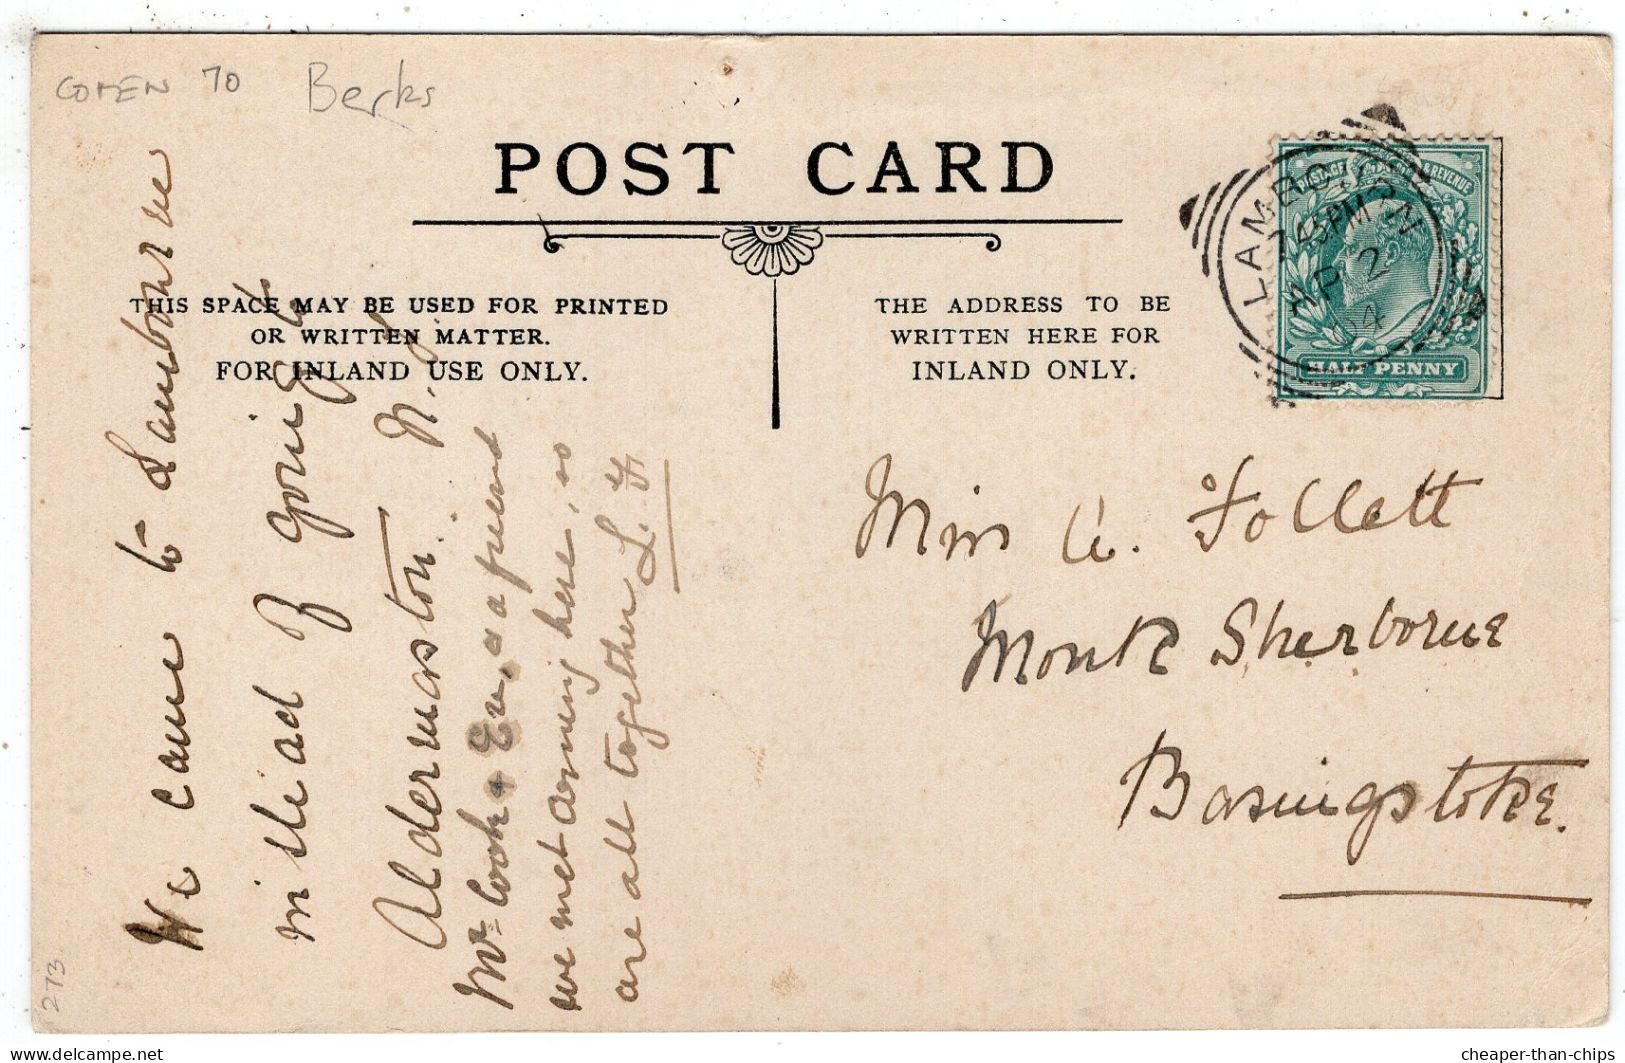 Berks
POST CARD
THIS SPACE MAY BE USED FOR PRINTED
OR WRITTEN MATTER.
FOR INLAND USE ONLY.
THE ADDRESS TO BE
WRITTEN HERE FOR
INLAND ONLY.
POSTAGE REVENUE
HALF PENNY
LAMBOURN
7 45 PM
AP 2
04
We came to Lambourne
instead of going to
Aldermaston.
Mr Cook + a friend
we met coming here, so
are all together L. F
Miss A. Follett
Monk Sherborne
Basingstoke.
273
cheaper-than-chips
www.delcampe.net